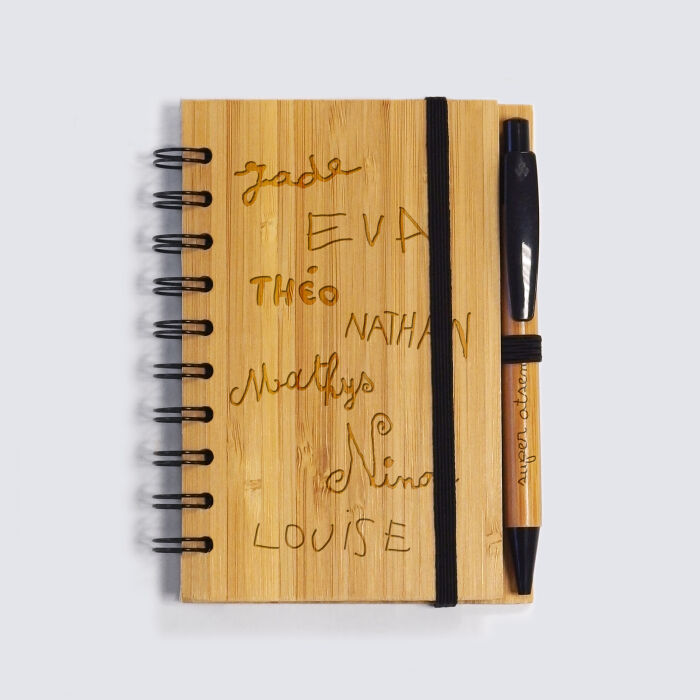 Jade
EVA
THÉO
NATHAN
Mathys
LOUISE
super atsem